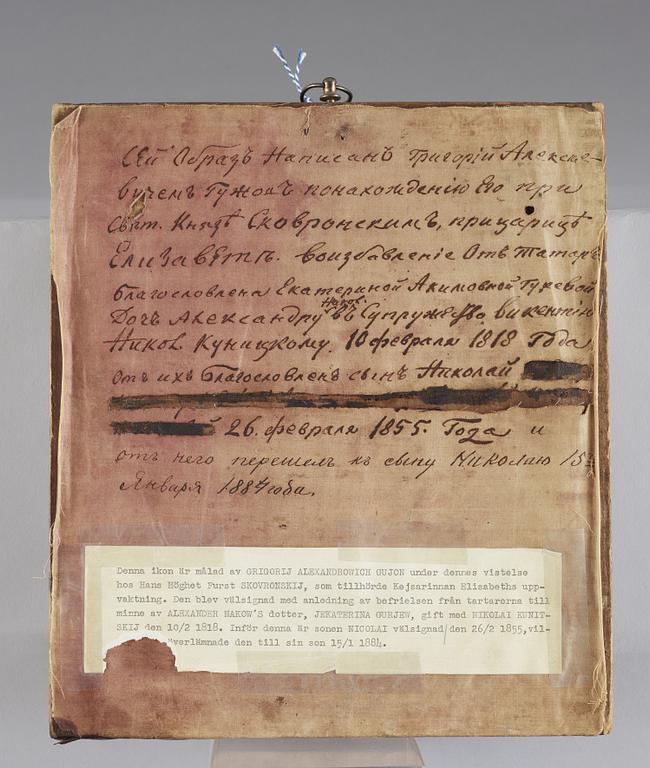 Сей Образъ Написанъ Григорій Алексан-
вичемъ Гужонъ понахожденію Его при
Свѣт. Князѣ Сковронскимъ, прицарицѣ
Елизаветъ. воизбавленіе Отъ Татаръ
благословлена Екатериной Акимовной Гуревой
Наков.
Дочь Александру въ Супружество викентію
Ников. Куницкому. 10 февраля 1818 Года
отъ ихъ благословленъ сынъ Николай
26. февраля 1855. Года и
отъ него перешелъ къ сыну Николаю 15
Января 1884 года.
Denna ikon är målad av GRIGORIJ ALEXANDROWICH GUJON under dennes vistelse
hos Hans Höghet Furst SKOVRONSKIJ, som tillhörde Kejsarinnan Elisabeths upp-
vaktning. Den blev välsignad med anledning av befrielsen från tartarerna till
minne av ALEXANDER HAKOW'S dotter, JEKATERINA GURJEW, gift med NIKOLAI KUNIT-
SKIJ den 10/2 1818. Inför denna är sonen NICOLAI välsignad/den 26/2 1855,vil-
överlämnade den till sin son 15/1 1884.